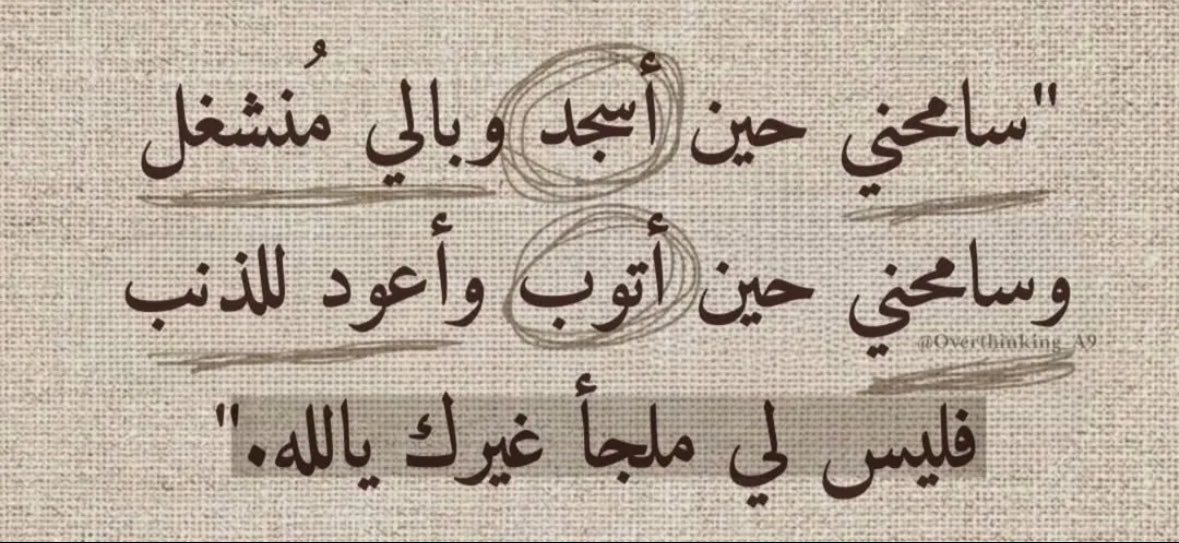 "سامحني حين أسجد وبالي مُنشغل
وسامحني حين أتوب وأعود للذنب
@Overthinking_A9
فليس لي ملجأ غيرك يالله."